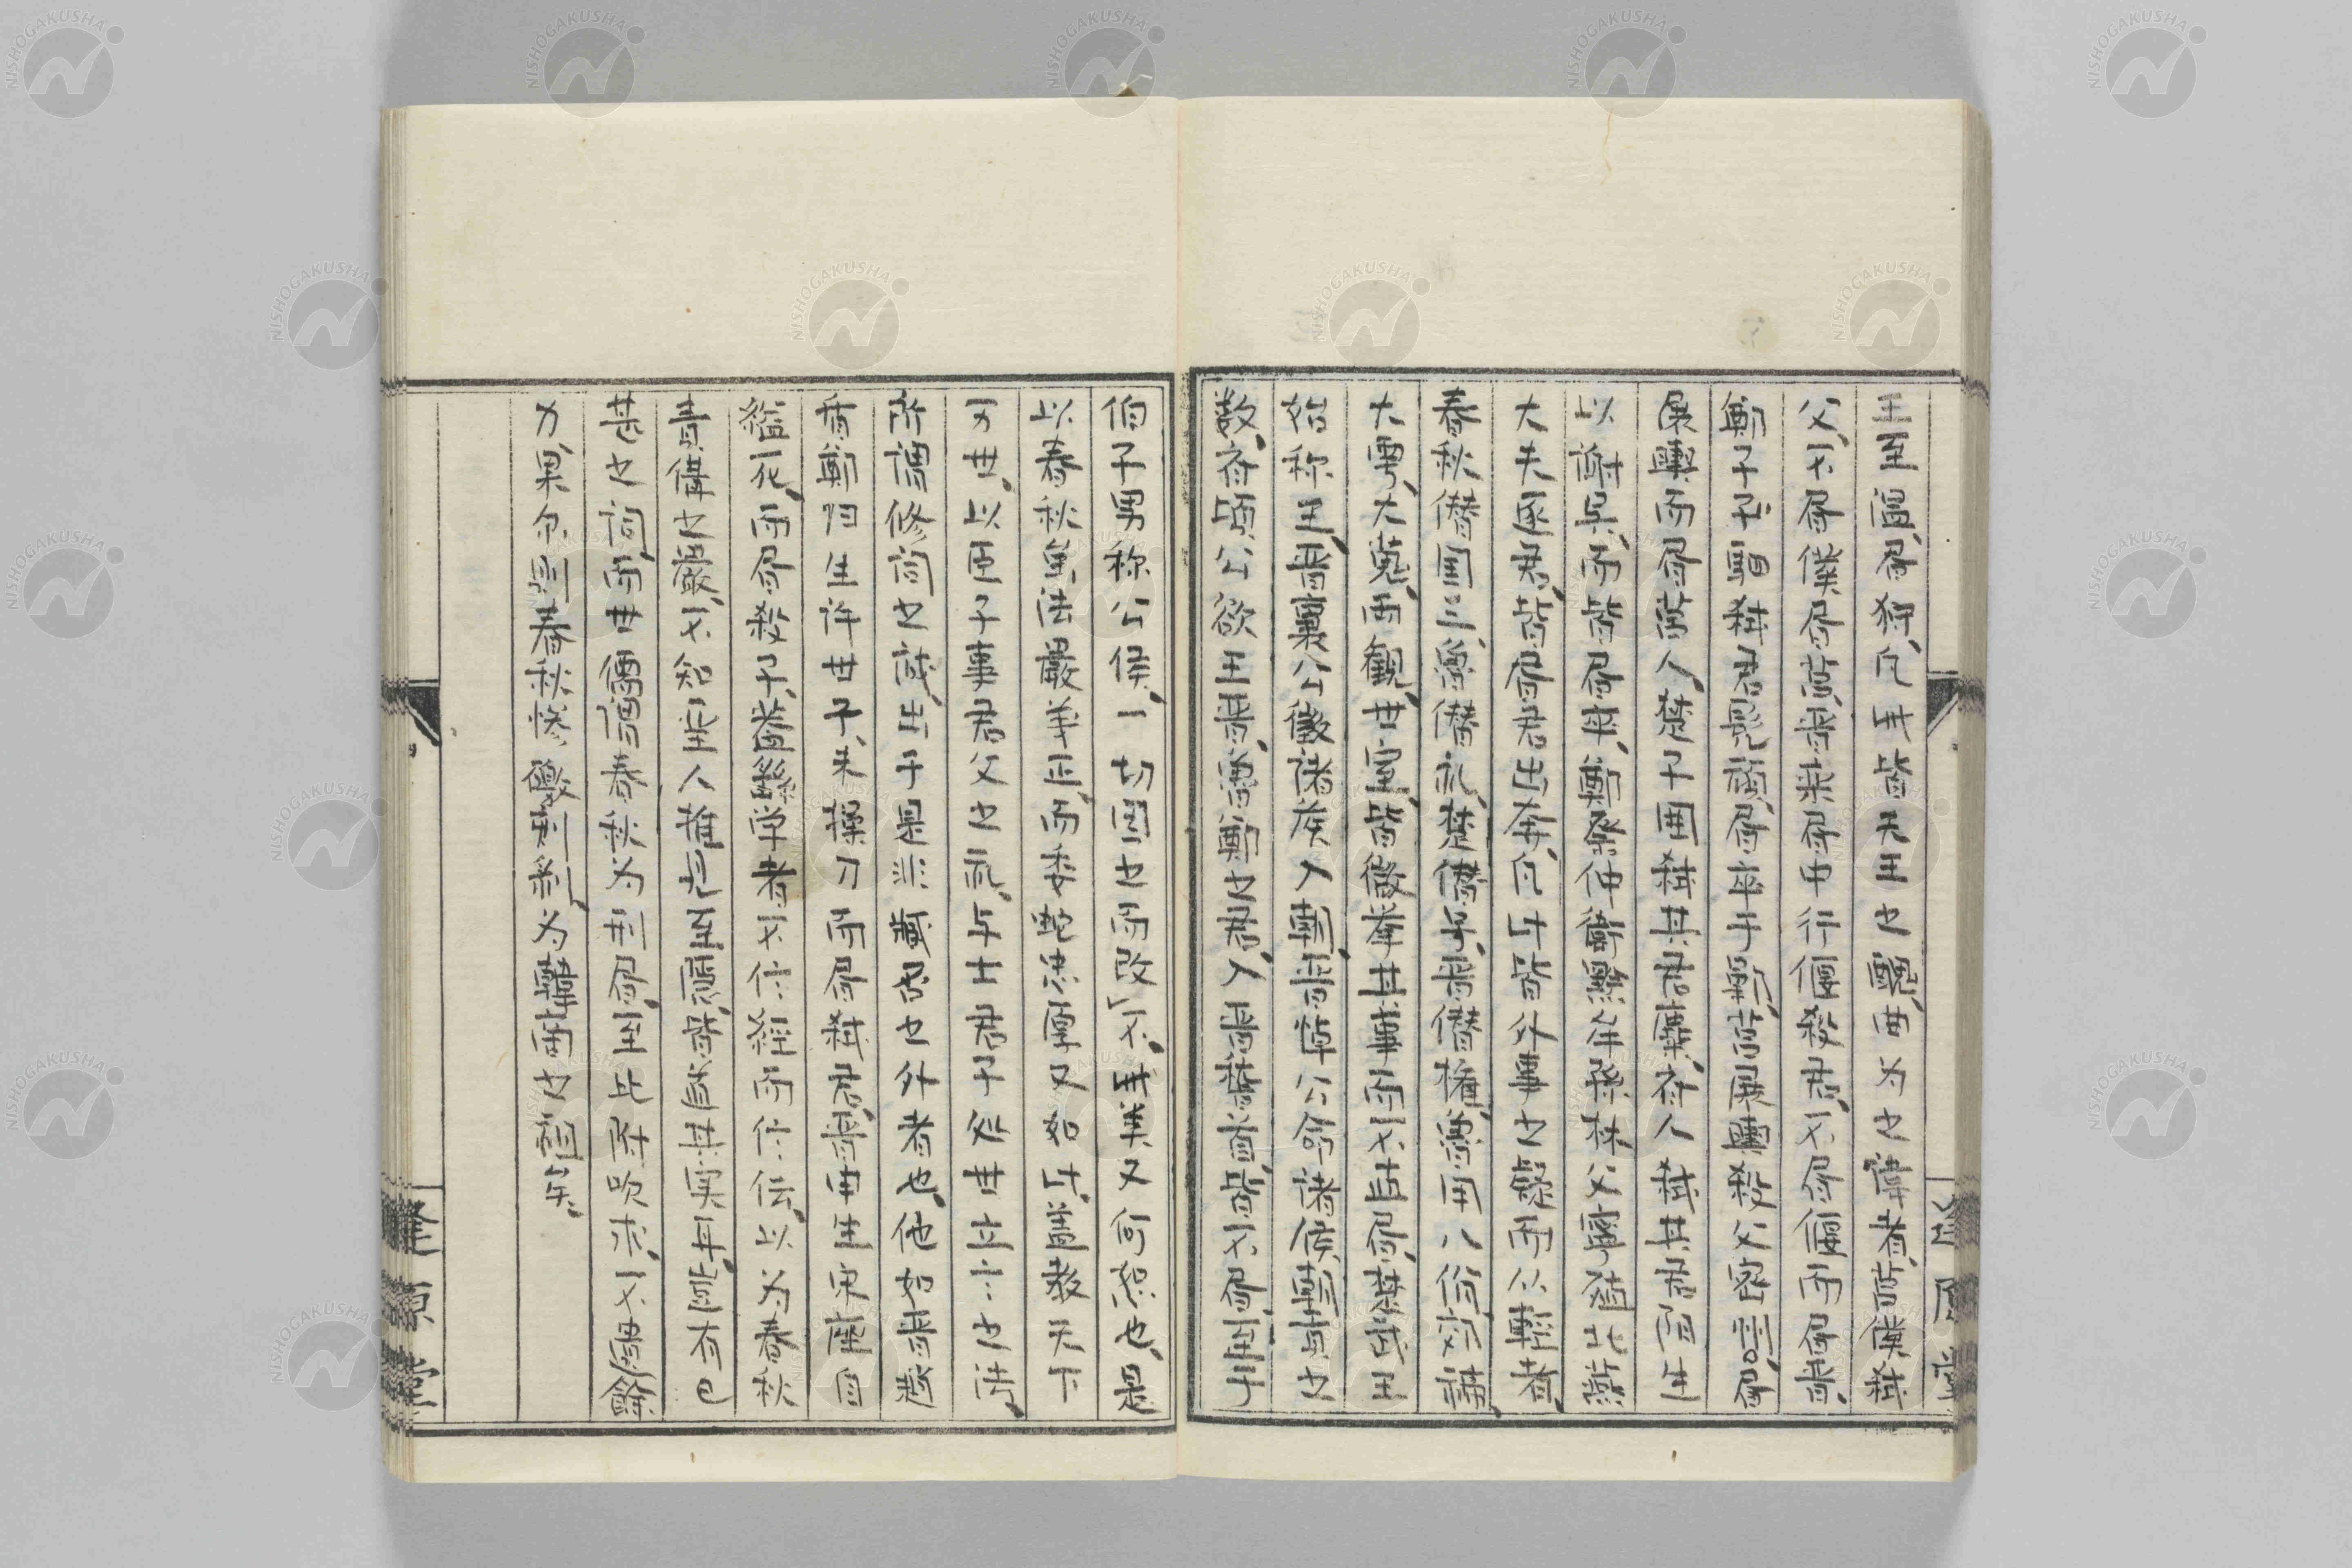 王至溫、書狩、凡此皆天王之醜、曲为之諱者、莒僕弑
父、不書僕書莒、晋栾書中行偃殺君、不書偃而書晋、
鄭子子駟弑君髡頑、書卒于鄵、莒展輿殺父密州、書
展輿而書莒人、楚子囲弑其君麇、齐人弑其君陽生
以謝呉、而皆書卒、鄭祭仲衛黙、孫林父寧殖、北燕
大夫逐君、皆書君出奔、凡此皆外事之疑而从輕者、
春秋僭国三、魯僭礼、楚僭号、晋僭権、魯用八佾、郊禘
大雩、大蒐、両観、世室、皆微挙其事而不直書、楚武王
始称王、晋襄公徴諸侯入朝、晋悼公命諸侯朝貢之
数、齐頃公欲王晋、魯鄭之君、入晋稽首、皆不書、至于
伯子男称公侯、一切因之而改、不此業又何恕也、是
以春秋虽法嚴义正、而委蛇忠厚又如此、盖教天下
万世、以臣子事君父之礼、与士君子処世立言之法、
所謂修詞之誠、出于是非臧否之外者也、他如晋趙
盾鄭归生許世子、未操刀而書弑君、晋申生宋座自
縊死、而書殺子、盖繇学者不信経而信伝、以为春秋
責備之嚴、不知聖人権見至隱、皆直其実耳、豈有已
甚之詞、而世儒謂春秋为刑書、至比附吹求、不遺餘
力、果尔則春秋惨礉刻剝、为韓商之祖矣、